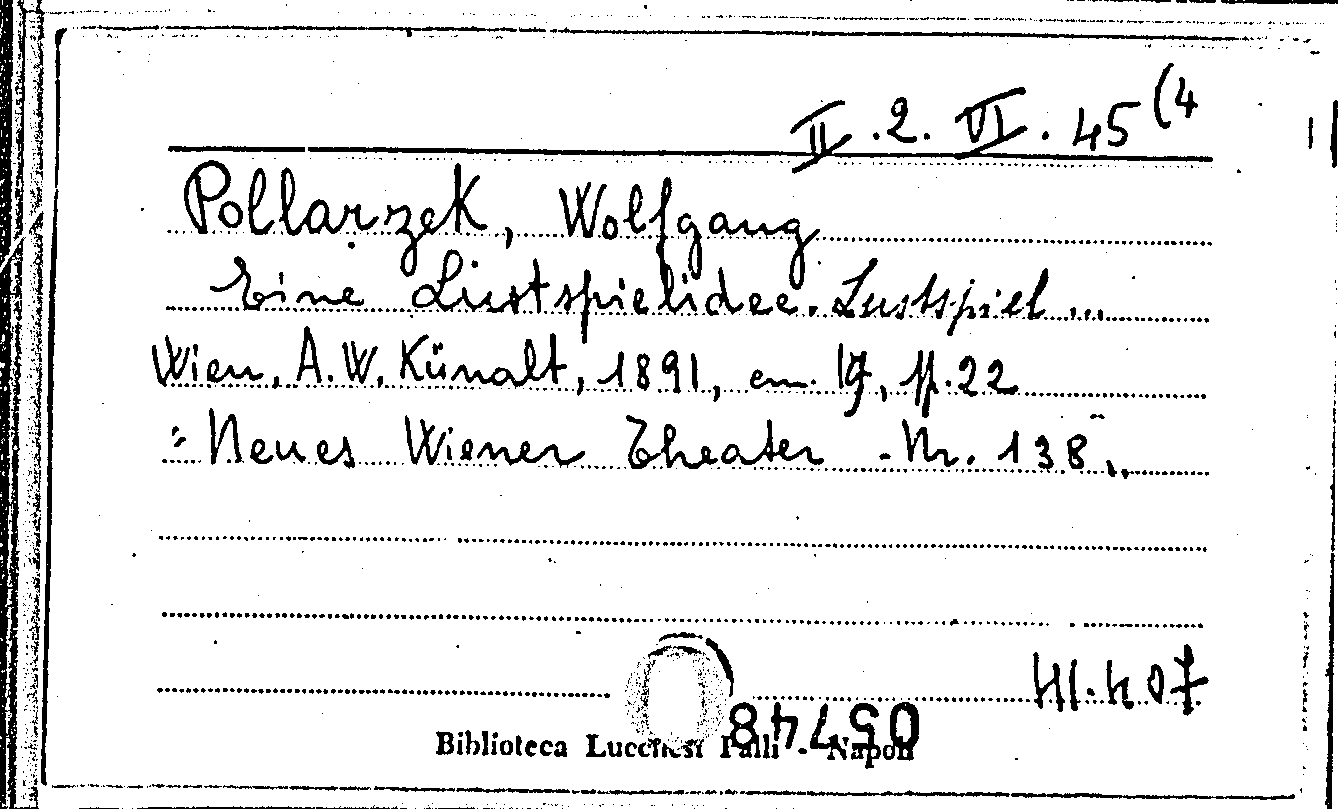 II.2.VI.45(4
Pollarzek, Wolfgang
Eine Lustspielidee. Lustspiel...
Wien, A.W. Künalt, 1891, cm. 17, p. 22
= Neues Wiener Theater - Nr. 138"
41.407
057 48
Biblioteca Lucchesi Palli - Napoli